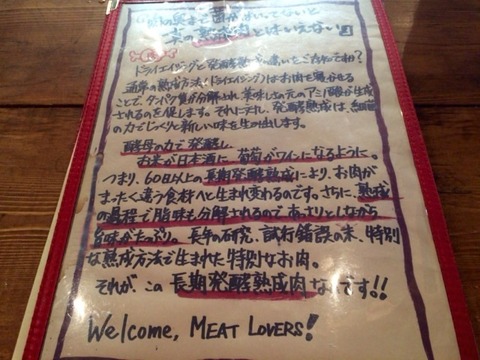 真の熟成肉とはいえない』
ドライエイジングと発酵熟成の違いをご存知ですか?
通常の熟成方法(ドライエイジング)はお肉を寝かせる
ことで、タンパク質が分解され、美味しさの元のアミノ酸が生成
されるのを促します。それに対し、発酵熟成は、細菌
の力でじっくりと新しい味を生み出します。
酵母の力で発酵し、
お米が日本酒に、葡萄がワインになるように。
つまり、60日以上の長期発酵熟成により、お肉が
まったく違う食材へと生まれ変わるのです。さらに、熟成
の過程で脂味も分解されるので あっさりとしながら
旨味がたっぷり。長年の研究、試行錯誤の末、特別
な熟成方法で生まれた特別なお肉。
それが この 長期発酵熟成肉 なのです!!
Welcome, MEAT LOVERS!